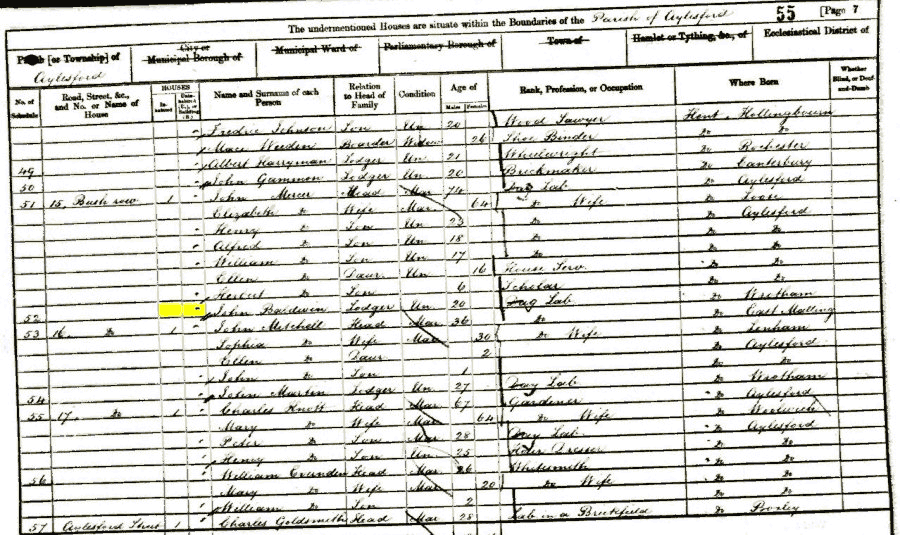 The undermentioned Houses are situate within the Boundaries of the Parish of Aylesford 55 [Page 7
Parish [or Township] of City or Municipal Borough of Municipal Ward of Parliamentary Borough of Town of Hamlet or Tything, &c., of Ecclesiastical District of
Aylesford
No. of Schedule Road, Street, &c., and No. or Name of House HOUSES Inhabited Uninhabited (U.), or Building (B.) Name and Surname of each Person Relation to Head of Family Condition Age of Males Females Rank, Profession, or Occupation Where Born Whether Blind, or Deaf-and-Dumb
Johnson Son Un 20 Wood Sawyer Kent Hollingbourn
Weeden Boarder Widow 26 Shoe Binder Do Do
49 Albert Harryman Lodger Un 21 Wheelwright Do Rochester
50 John Gammon Lodger Un 20 Brickmaker Do Canterbury
51 15 Bush row 1 John Mercer Head Mar 74 Ag Lab Do Aylesford
Elizabeth Do Wife Mar 64 Do Wife Do Loose
Henry Do Son Un 23 Do Do Aylesford
Alfred Do Son Un 18 Do Do Do
William Do Son Un 17 Do Do Do
Ellen Do Daur Un 16 House Serv Do Do
Herbert Do Son 6 Scholar Do Do
52 John Baldwin Lodger Un 20 Ag Lab Do Wrotham
53 16 Do 1 John Mitchell Head Mar 36 Do Do East Malling
Sophia Do Wife Mar 30 Do Wife Do Lenham
Ellen Do Daur 2 Do Aylesford
John Do Son 1 Do Do
54 John Martin Lodger Un 27 Ag Lab Do Wrotham
55 17 Do 1 Charles Knott Head Mar 67 Gardener Do Aylesford
Mary Do Wife Mar 64 Do Wife Do Woolwich
Peter Do Son Mar 28 Ag Lab Do Aylesford
Henry Do Son Un 25 Dresser Do Do
56 William Head Mar 26 Whitesmith Do Do
Mary Do Wife Mar 20 Do Wife Do Do
William Do Son 2 Do Do
57 Aylesford Street 1 Charles Goldsmith Head Mar 28 Lab in a Brickfield Do